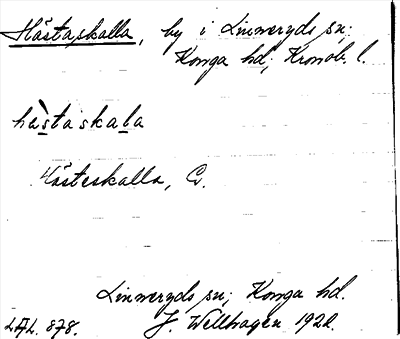 Hästaskalla, by i Linneryds sn;
Konga hd; Kronob. l.
hàstaskala
Hästeskalla, C.
Linneryds sn; Konga hd.
LAL. 878. J. Wellhagen 1922.